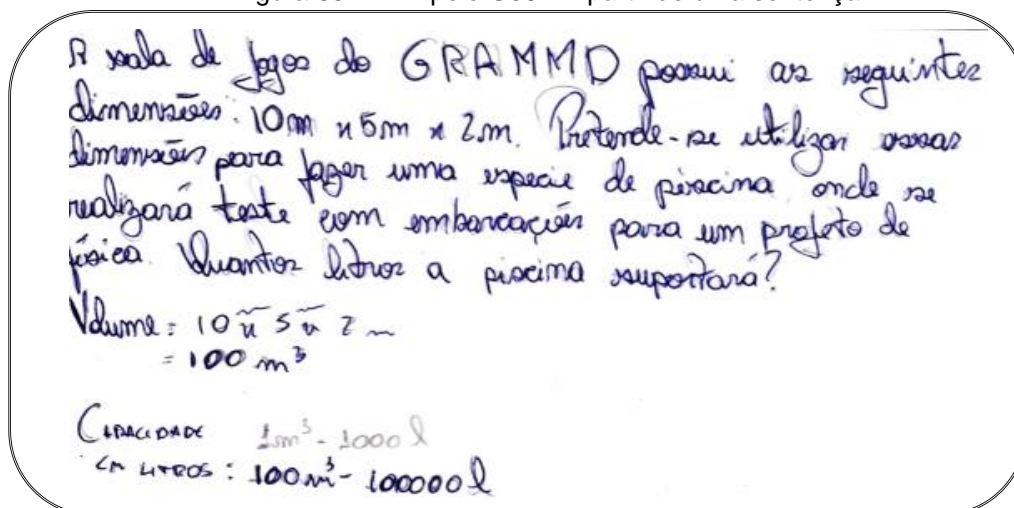 A sala de jogos do GRAMMD possui as seguintes
dimensões: 10m x 5m x 2m. Pretende-se utilizar essas
dimensões para fazer uma especie de piscina onde se
realizará teste com embarcações para um projeto de
física. Quantos litros a piscina suportará?
Volume = 10 x 5 x 2 m
= 100 m³
CAPACIDADE 1m³ - 1000 l
EM LITROS: 100m³ - 100000 l